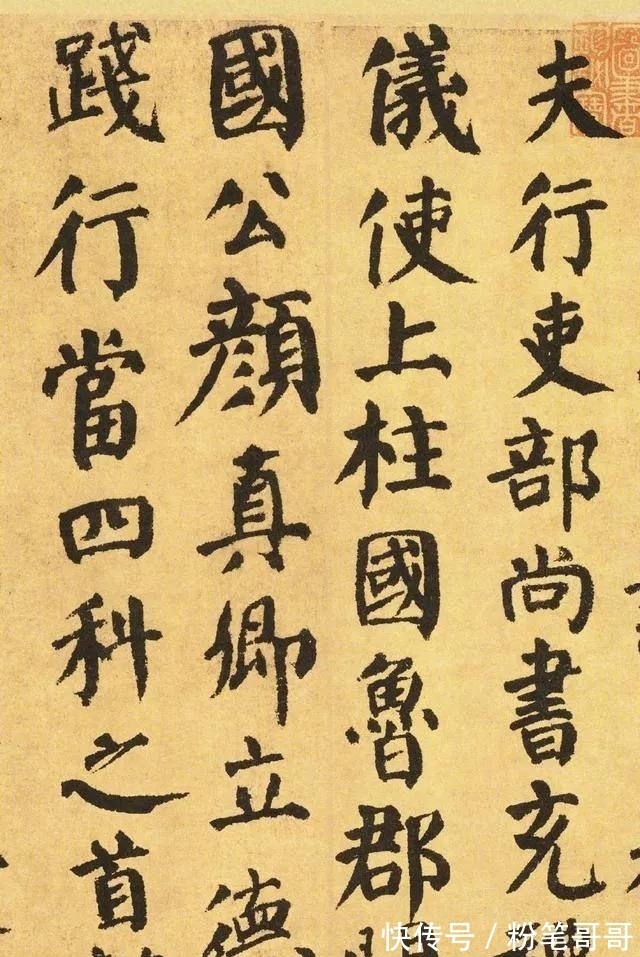 夫行吏部尚書充
儀使上柱國魯郡
國公顏真卿立德
踐行當四科之首
快传号 / 粉笔哥哥